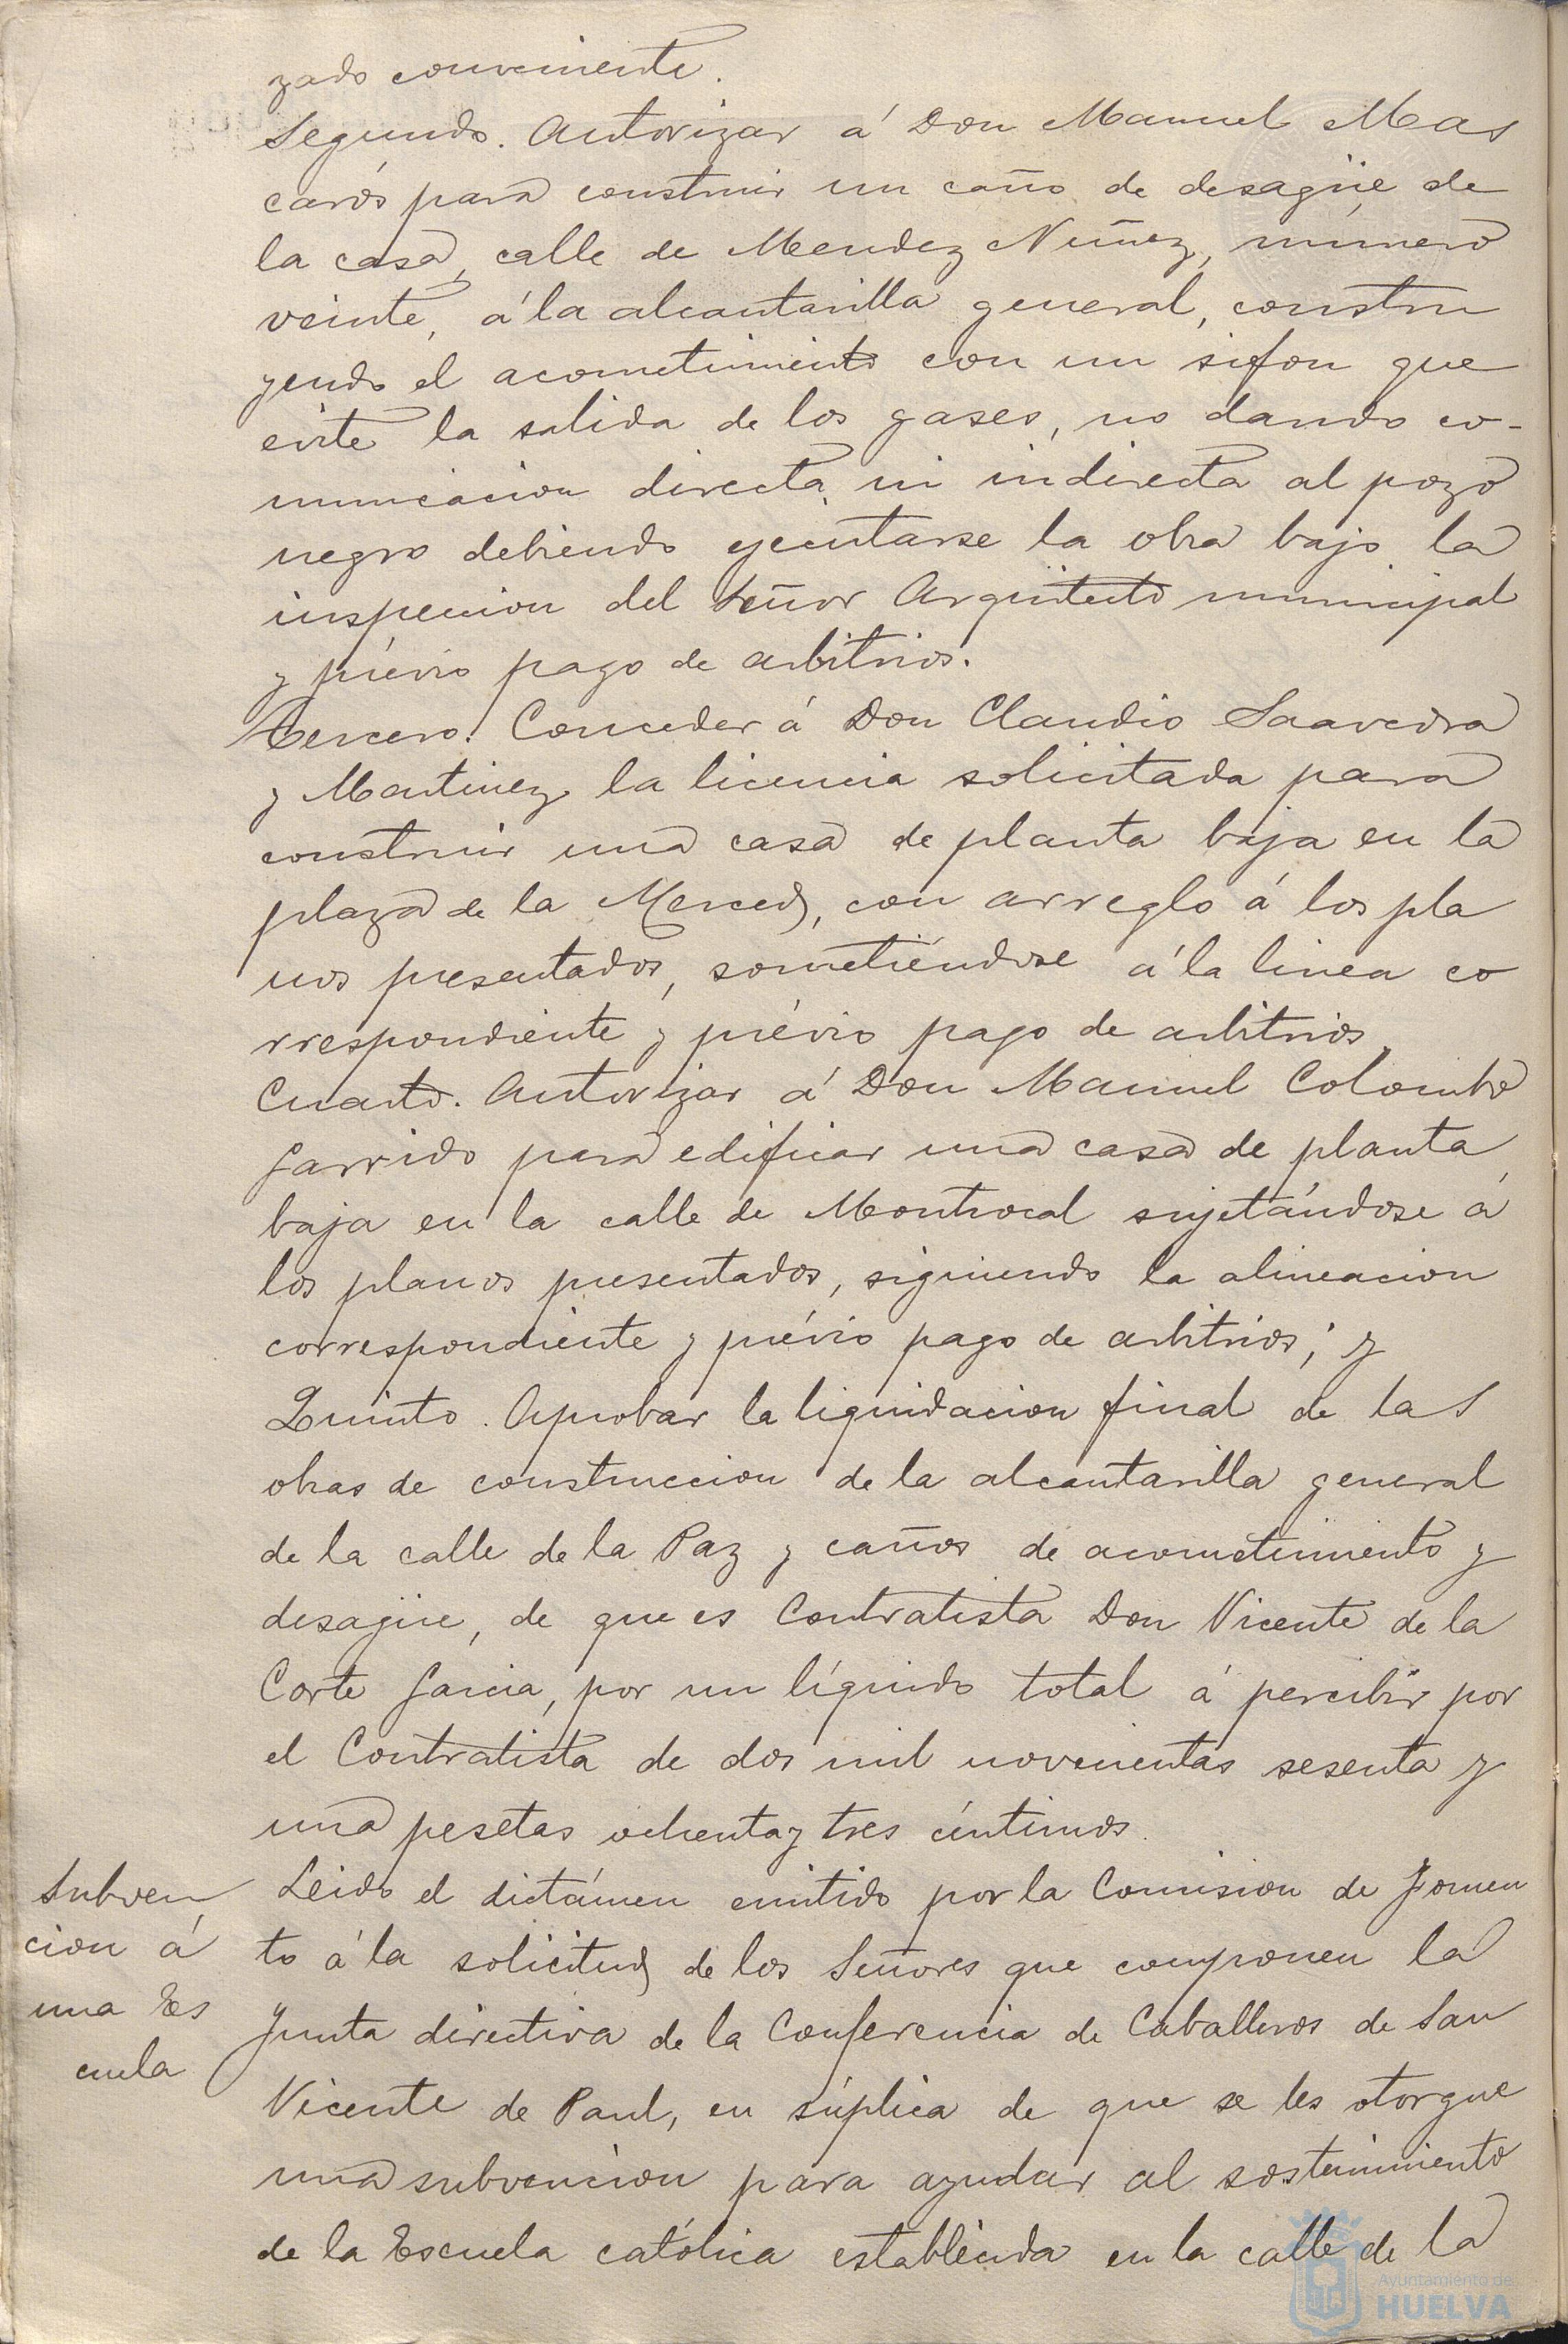 zado conveniente.
Segundo. Autorizar á Don Manuel Mas
carós para construir un caño de desagüe de
la casa, calle de Mendez Nuñez, número
veinte, á la alcantarilla general, constru
yendo el acometimiento con un sifon que
evite la salida de los gases, no dando co-
municacion directa ni indirecta al pozo
negro debiendo ejecutarse la obra bajo la
inspeccion del Señor Arquitecto municipal
y prévio pago de arbitrios.
Tercero. Conceder á Don Claudio Saavedra
y Martinez la licencia solicitada para
construir una casa de planta baja en la
plaza de la Merced, con arreglo á los pla
nos presentados, sometiéndose á la linea co
rrespondiente y prévio pago de arbitrios.
Cuarto. Autorizar á Don Manuel Colombo
Garrido para edificar una casa de planta
baja en la calle de Montrocal sujetándose á
los planos presentados, siguiendo la alineacion
correspondiente y prévio pago de arbitrios; y
Quinto. Aprobar la liquidacion final de las
obras de construccion de la alcantarilla general
de la calle de la Paz y caños de acometimiento y
desagüe, de que es Contratista Don Vicente de la
Corte Garcia, por un líquido total á percibir por
el Contratista de dos mil novecientas sesenta y
una pesetas ochenta y tres céntimos.
Subven
cion á
una Es
cuela
Leido el dictámen emitido por la Comision de Fomen
to á la solicitud de los Señores que componen la
Junta directiva de la Conferencia de Caballeros de San
Vicente de Paul, en súplica de que se les otorgue
una subvencion para ayudar al sostenimiento
de la Escuela católica establecida en la calle de la
Ayuntamiento de
HUELVA